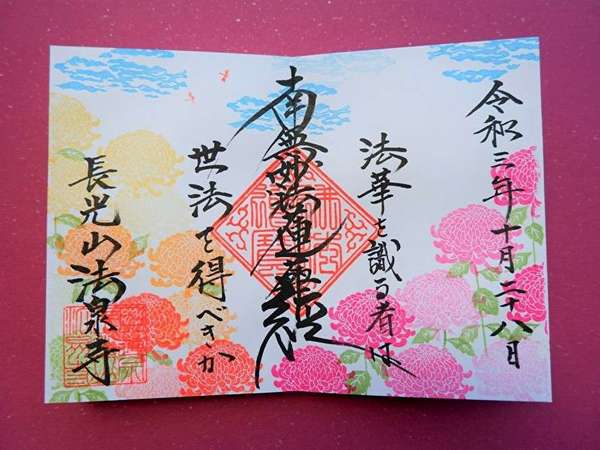 令和三年十月二十八日
法華を識る者は
南無妙法蓮華経
世法を得べきか
長光山法泉寺